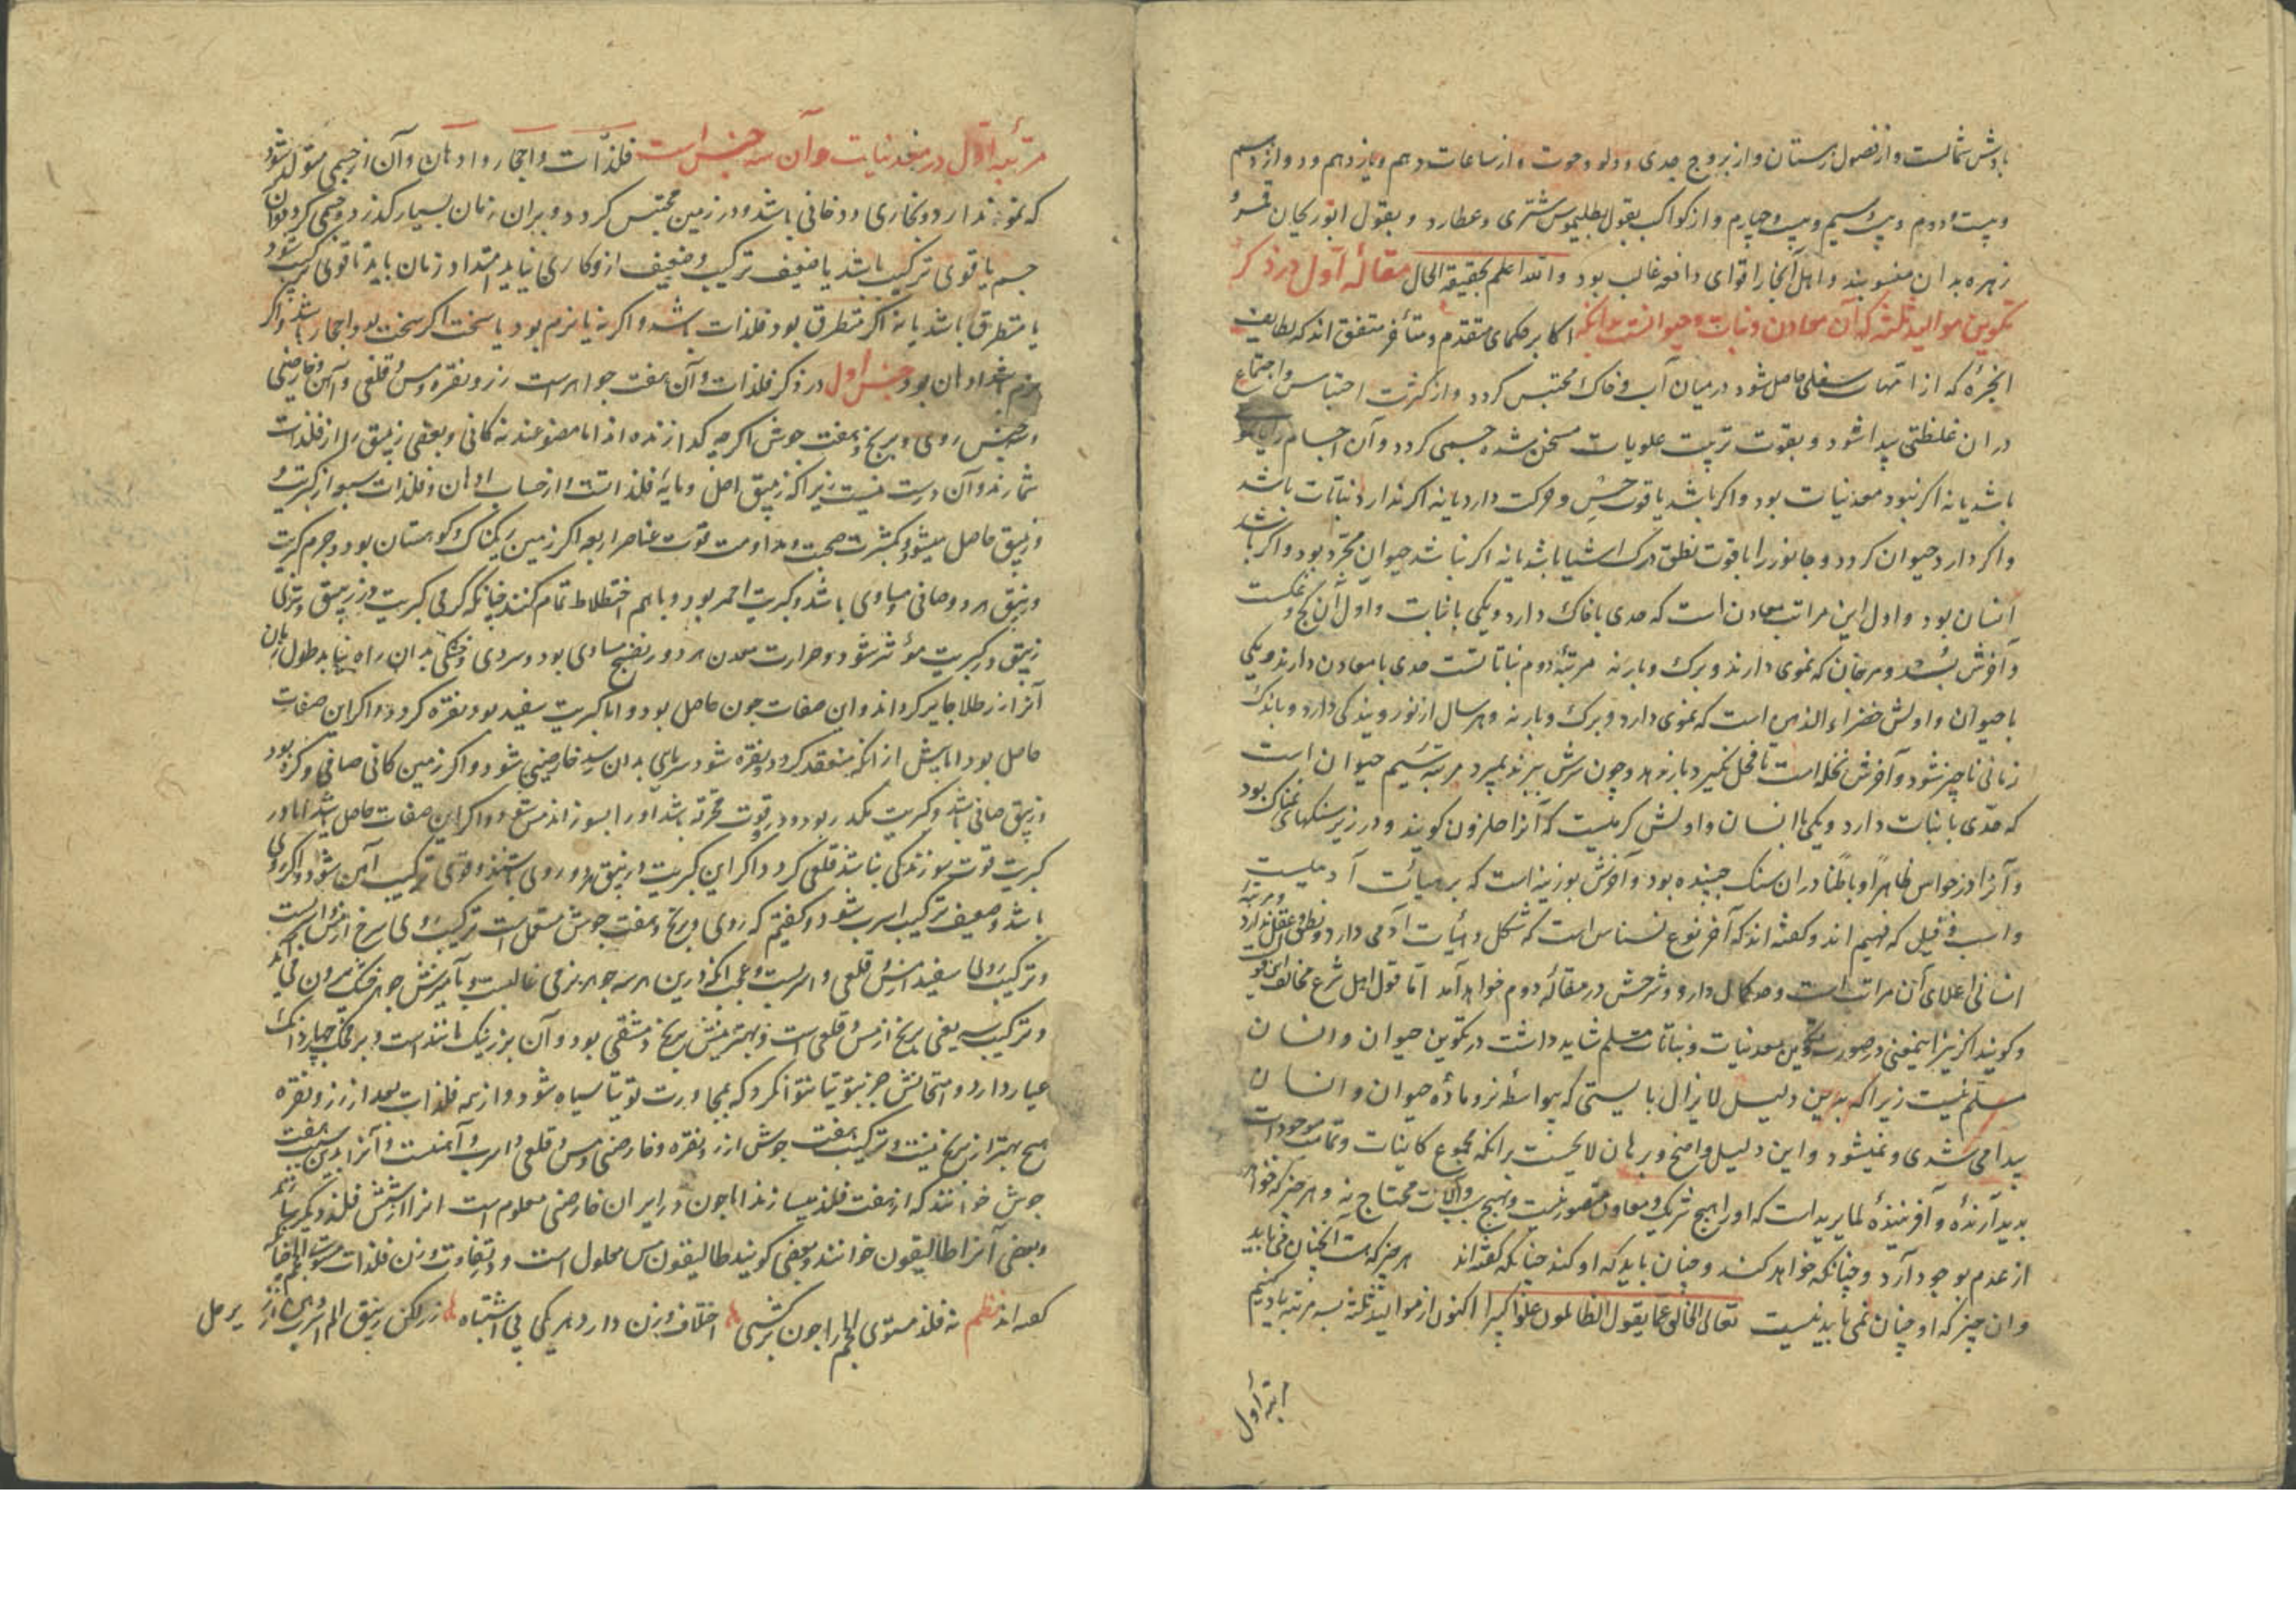 بادش شمالست و از فصول زمستان و از بروج جدی و دلو و حوت و از ساعات دهم و یازدهم و دوازدهم
و بیست و دوم و بیست و سیم و بیست و چهارم و از کواکب بقول بطلیموس مشتری و عطارد و بقول ابوریحان قمر و
زهره بدان منسوبند و اهل آنجا را قوای دافعه غالب بود والله اعلم بحقیقة الحال مقالهٔ اول در ذکر
تکوین موالید ثلثه که آن معادن و نبات و حیوانست بدانکه اکابر حکمای متقدم و متأخر متفق اند که لطایف
ابخرهٔ که از امهات سفلی حاصل شود در میان آب و خاک محتبس کردد و از کثرت احتباس و اجتماع
در ان غلظتی پیدا شود و بقوت تربیت علویات مسخن شده جسمی کردد و آن اجسام را یا نمو
باشد یا نه اکر نبود معدنیات بود و اکر باشد یا قوت حس و حرکت دارد یا نه اکر ندارد نباتات باشد
و اکر دارد حیوان کردد و جانور را یا قوت نطق و درک اشیا باشد یا نه اکر نباشد حیوان مجرد بود و اکر باشد
انسان بود و اول این مراتب معادن است که حدی با خاک دارد و یکی با نبات و اول آن کچ و نمکست
و آخرش بسد و مرجان که نموی دارند و برک و بار نه مرتبهٔ دوم نباتاتست حدی با معادن دارند و یکی
با حیوان و اولش خضراء الدمن است که نموی دارد و برک و بار نه و هر سال از نو رویندکی دارد و باندک
زمانی ناچیز شود و آخرش نخله است تا فحل نکیرد بار ندهد و چون سرش ببرند بمیرد مرتبه سیم حیوان است
که حدی با نبات دارد و یکی با انسان و اولش کرمیست که آنرا حلزون کویند و در زیر سنکهای نمناک بود
و آنرا از حواس ظاهراً و باطناً در ان سنک جنبنده بود و آخرش بوزینه است که بر هیات آدمیست
و اسب و فیل که فهیم اند و کفته اند که آخر نوع نسناس است که شکل و هیأت آدمی دارد و نطق و عقل ندارد و مرتبهٔ
انسانی اعلای آن مراتب است و حد کمال دارد و شرحش در مقالهٔ دوم خواهد آمد اما قول اهل شرع مخالف این قول
و کویند اکر نیز اینمعنی در صورت تکوین معدنیات و نباتات مسلم شاید داشت در تکوین حیوان و انسان
مسلم نیست زیرا که بدین دلیل لایزال بایستی که بیواسطهٔ نر و مادهٔ حیوان و انسان
پیدا می شدی و نمیشود و این دلیل واضح و برهان لایحست برانکه مجموع کاینات و تمامت موجودات
پدید آرندهٔ و آفرینندهٔ لما یرید است که او را هیچ شریک و معاون متصور نیست و بهیچ سبب و آلات محتاج نه و هر چیز که خواهد
از عدم بوجود آرد و چنانکه خواهد کند و چنان باید که او کند چنانکه کفته اند هر چیز که هست آنچنان می باید
وان چیز که او چنان نمی باید نیست تعالی الخالق عما یقول الظالمون علوا کبیرا اکنون از موالید ثلثه بسه مرتبه یاد کنیم
مرتبهٔ اول
مرتبهٔ اول در معدنیات و آن سه جنس است فلذات و احجار و ادهان و آن از جسمی متولد شود
که نمو ندارد و بخاری و دخانی باشد و در زمین محتبس کردد و بر ان زمان بسیار کذرد و جسمی کردد و آن
جسم یا قوی ترکیب باشد یا ضعیف ترکیب و ضعیف ازو کاری نیاید امتداد زمان باید تا قوی ترکیب شود
یا متطرق باشد یا نه اکر متطرق بود فلذات باشد و اکر نه یا نرم بود یا سخت اکر سخت بود احجار باشد و اکر
نرم باشد ادهان بود جنس اول در ذکر فلذات و آن هفت جواهرست زر و نقره و مس و قلعی و آهن و خارصنی
و سرب روی و برنج و هفت جوش اکر چه کدازنده اند اما مصنوعند نه کانی و بعضی زیبق را از فلذات
شمارند و آن درست نیست زیرا که زیبق اصل و مایهٔ فلذاتست و از حساب ادهان و فلذات سبعه از کبریت و
زیبق حاصل میشود بکثرت صحبت و مداومت قوت عناصر اربعه اکر زمین ریکناک و کوهستان بود و جرم کبریت
و زیبق هر دو صافی و مساوی باشد و کبریت احمر بود و با هم اختلاط تمام کنند چنانکه کرمی کبریت در زیبق و تری
زیبق در کبریت مؤثر شود و حرارت معدن هر دو را نضج مساوی بود و سردی و خشکی بدان راه نیابد بطول زمان
آنرا زر طلا جایز کرداند و این صفات چون حاصل بود و اما کبریت سفید بود نقره کردد و اکر این صفات
حاصل بود اما پیش از انکه منعقد کردد و نقره شود سرمای بدان رسد خارصنی شود و اکر زمین کانی صافی و کرم بود
و زیبق صافی باشد و کبریت مکدر بود و درو قوت محرقه باشد او را بسوزاند مس شود و اکر این صفات حاصل باشد اما در
کبریت قوت سوزندکی نباشد قلعی کردد و اکر این کبریت و زیبق هر دو ردی باشند و قوی ترکیب آهن شود و اکر ردی
باشد و ضعیف ترکیب اسرب شود و کفتیم که روی و برنج و هفت جوش مستعمل است ترکیب روی سرخ از مس و اسربست
و ترکیب روی سفید از مس و قلعی و اسربست و عجب انکه درین هر سه جوهر نرمی غالبست و بآمیزش جوهر خشک بیرون می آید
و ترکیب سه یعنی برنج از مس و قلعی است و بهترینش برنج دمشقی بود و آن بزر نیک مانند است و بر محک چهار دانک
عیار دارد و امتحانش جز بتوتیا نتوان کرد که بمجاورت توتیا سیاه شود و از همه فلذات بعد از زر و نقره
هیچ بهتر از برنج نیست و ترکیب هفت جوش از زر و نقره و خارصنی و مس و قلعی و اسرب و آهنست و آنرا بدین سبب هفت
جوش خوانند که از هفت فلذ میسازند اما چون در ایران خارصنی معدوم است انرا از شش فلذ دیکر سازند
و بعضی آنرا طالیقون خوانند و بعضی کویند طالیقون مس محلول است و در تفاوت وزن فلذات مستوی الحجم
کفته اند نظم نه فلذ مستوی الحجم را چون برکشی اختلاف وزن دارد هر یکی بی اشتباه زر لکن زیبق الم اسرب